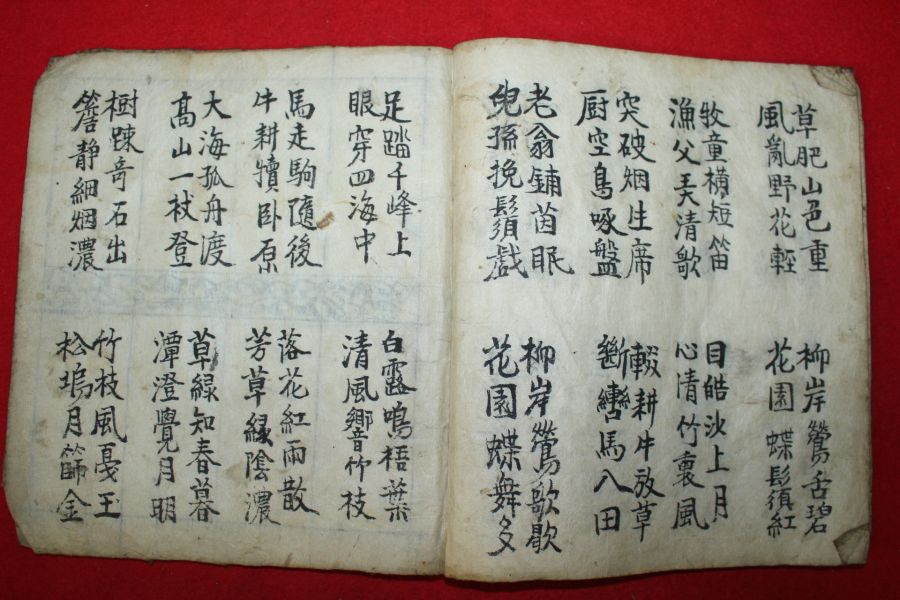 草肥山色重
風亂野花輕
牧童橫短笛
漁父清歌
突破烟生席
厨空鳥啄盤
老翁鋪茵眠
兒孫挽鬚戲
柳岸鶯舌碧
花園蝶鬚紅
目皓沙上月
心清竹裏風
輟耕牛放草
斷轡馬入田
柳岸鶯歌歇
花園蝶舞多
足踏千峰上
眼穿四海中
馬走駒隨後
牛耕犢卧原
大海孤舟渡
高山一杖登
樹踈奇石出
簷静細烟濃
白露鳴梧葉
清風響竹枝
落花紅雨散
芳草緑陰濃
草緑知春暮
潭澄覺月明
竹枝風戞玉
松塢月篩金